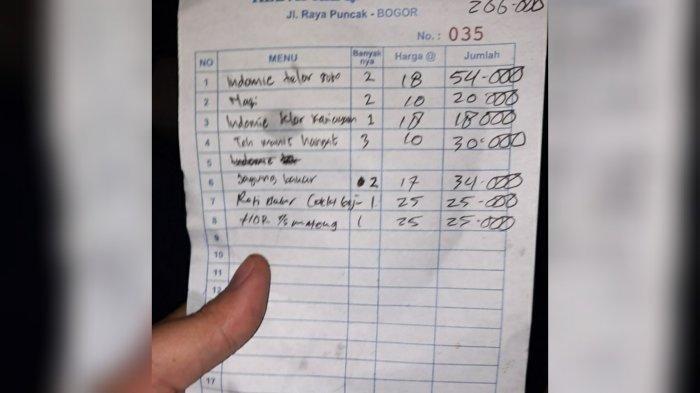 206-000
Jl. Raya Puncak - BOGOR
No. : 035
NO MENU Banyak nya Harga @ Jumlah
1 Indomie telor soto 2 18 54-000
2 Nasi 2 10 20 000
3 Indomie telor 1 18 18000
4 Teh manis hangat 3 10 30-000
5 Indomie
6 Jagung bakar 2 17 34-000
7 Roti Bakar 1 25 25-000
8 1/2 mateng 1 25 25-000
9
10
11
12
17